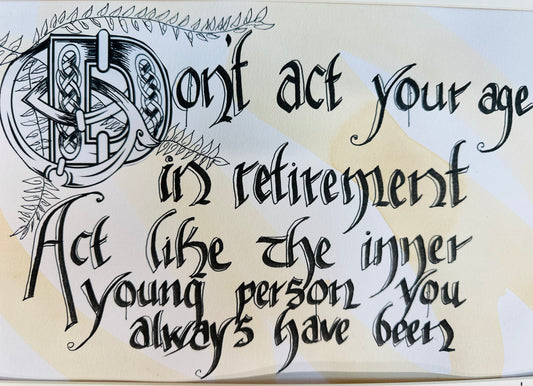 Don't act your age
in retirement
Act like the inner
young person you
always have been